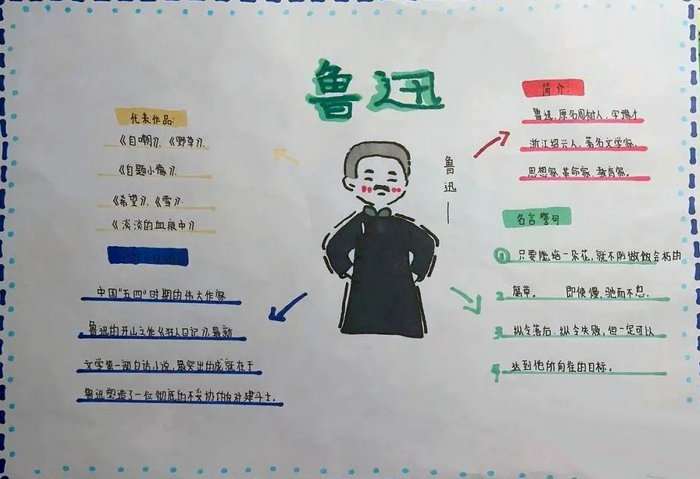 鲁迅
代表作品:
《自嘲》、《野草》、
《自题小像》、
《希望》、《雪》、
《淡淡的血痕中》
中国"五四"时期的伟大作家
鲁迅的开山之作《狂人日记》、是新
文学第一部白话小说,最突出的成就在于
鲁迅塑造了一位彻底的不妥协的反封建斗士.
鲁迅—
简介:
鲁迅,原名周树人,字豫才
浙江绍兴人,著名文学家、
思想家 革命家 教育家.
名言警句
1 只要能培一朵花,就不妨做做会朽的
2 腐草. 即使慢,驰而不息.
3 纵令落后,纵令失败,但一定可以
4 达到他所向往的目标.